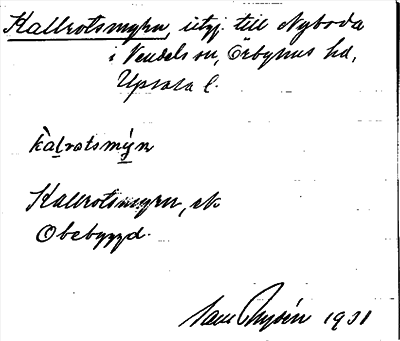 Kallrotsmyrn, utj. till Nyboda
i Vendels sn, Örbyhus hd,
Upsala l.
kàlrotsmýn
Kallrotsmyrn, ek
Obebyggd.
1931